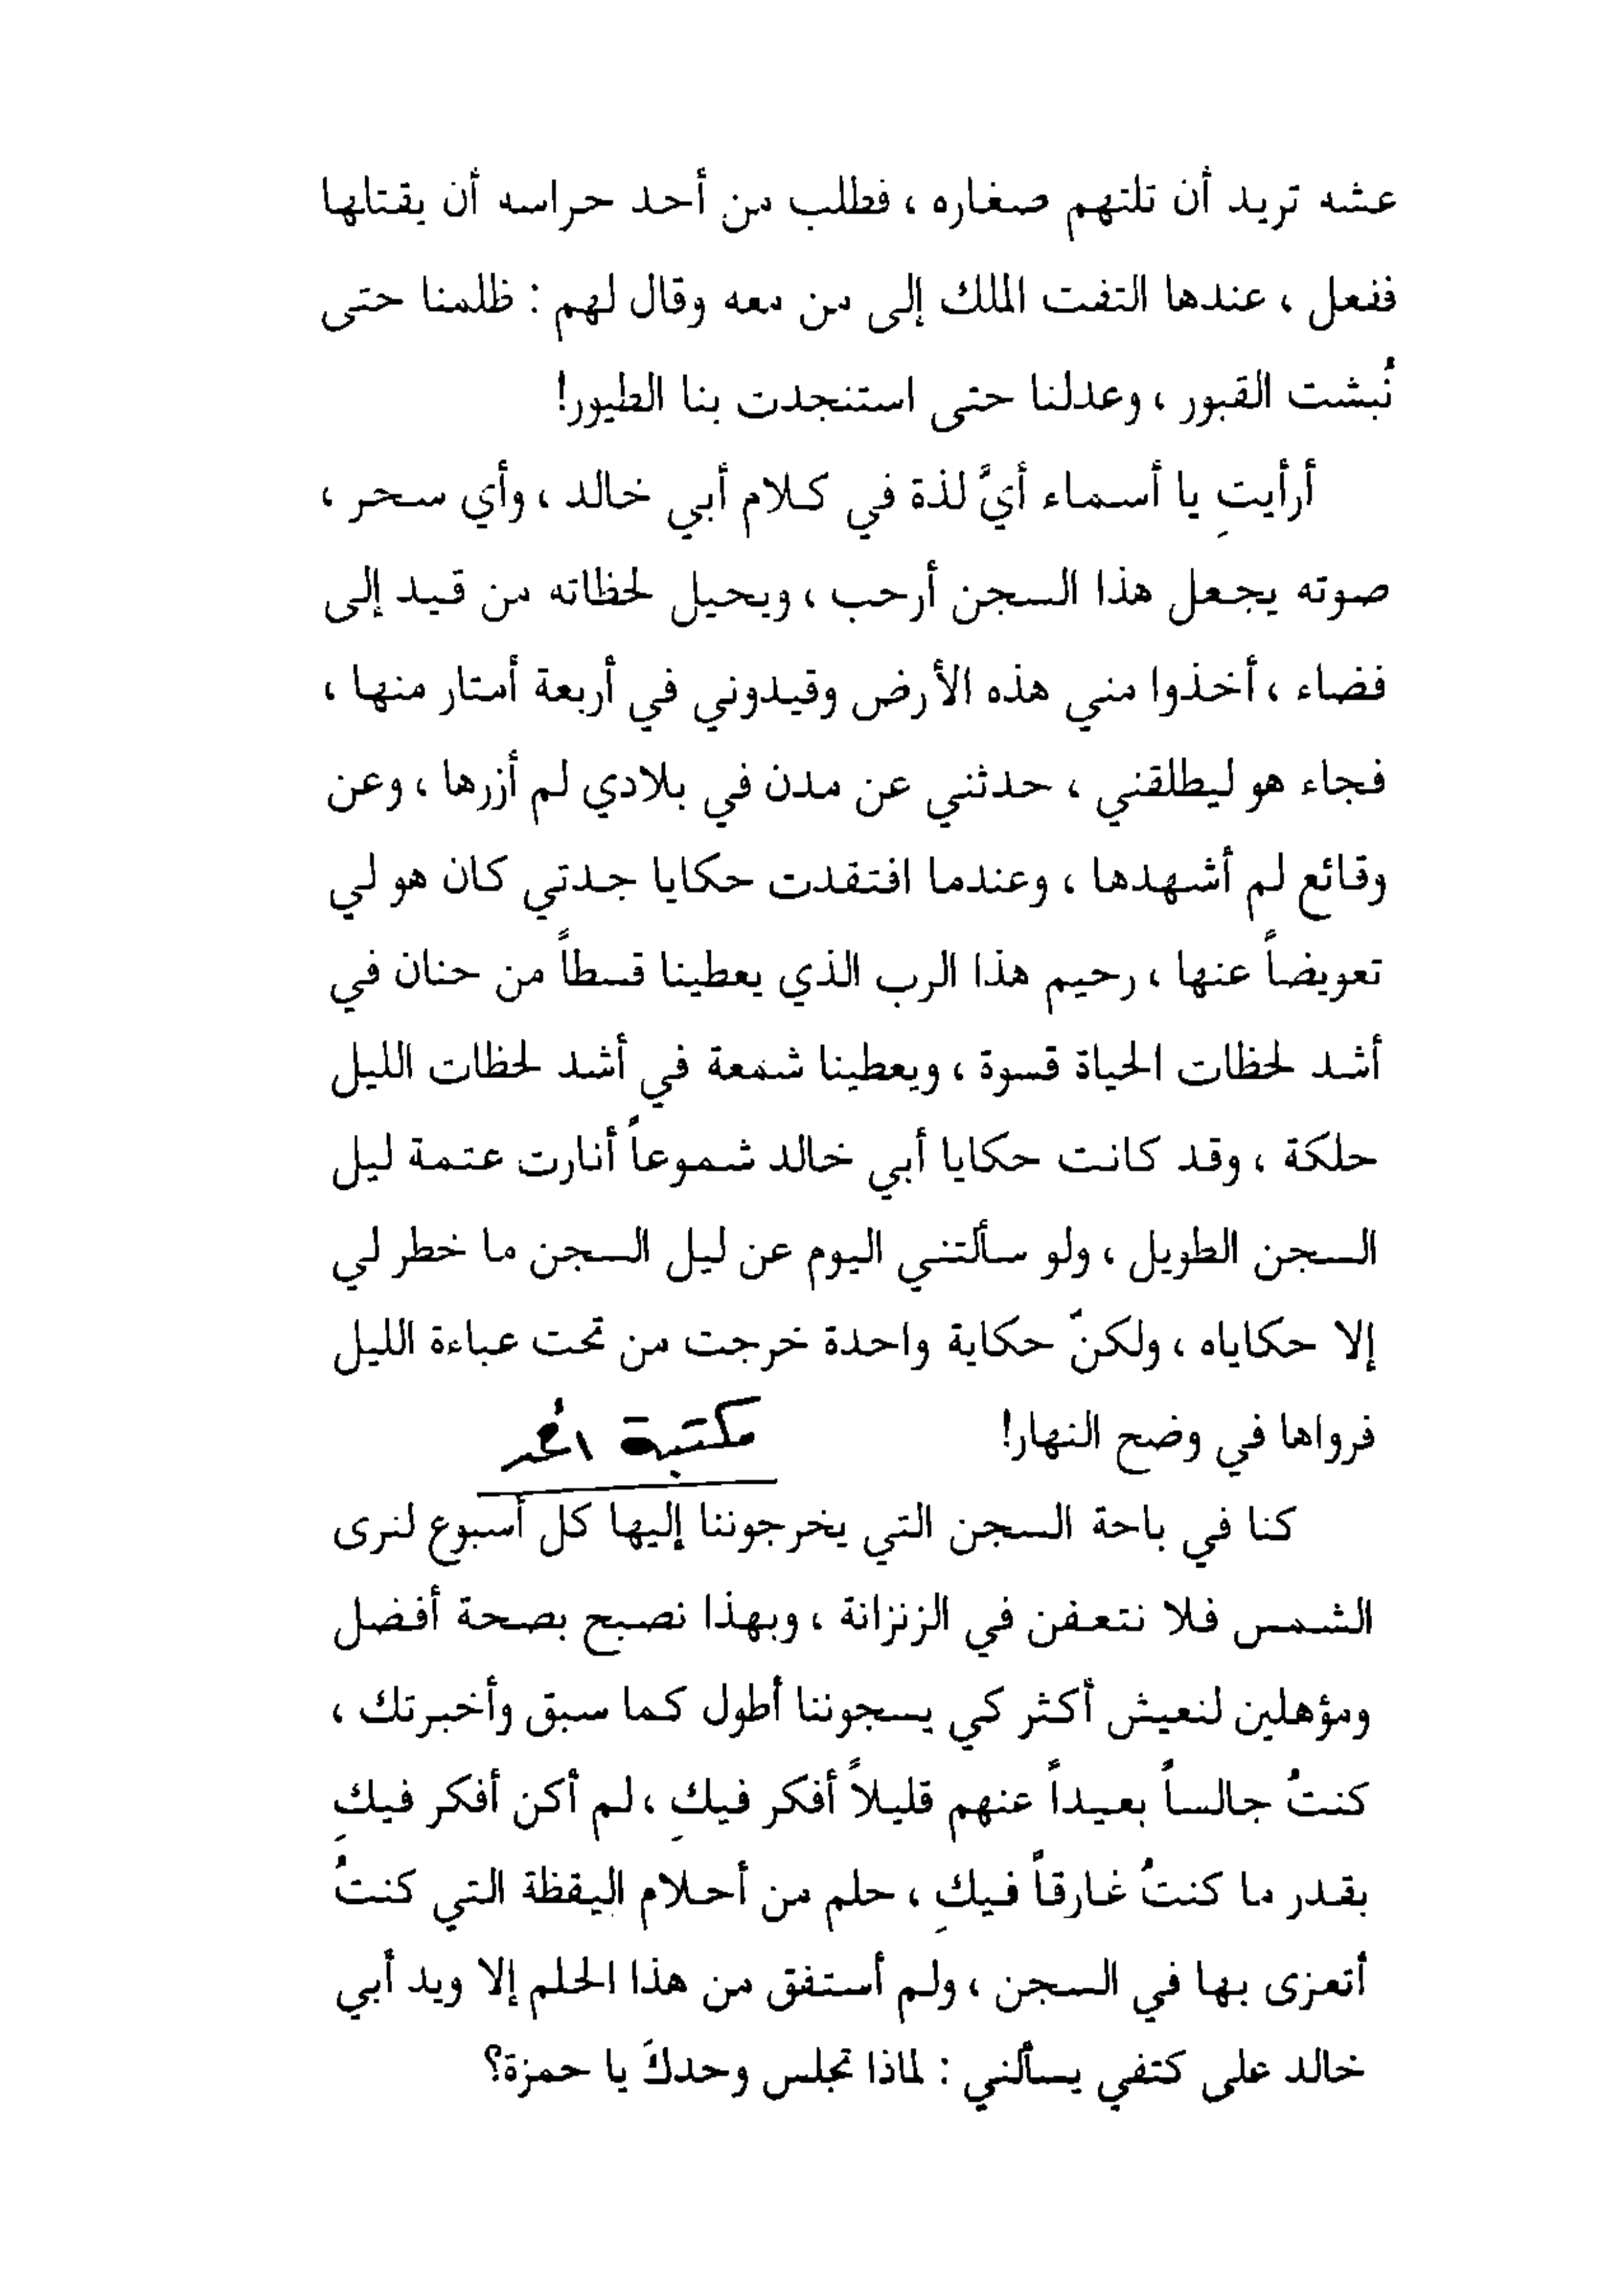 عشه تريد أن تلتهم صغاره ، فطلب من أحد حراسه أن يقتلها
ففعل ، عندها التفت الملك إلى من معه وقال لهم : ظلمنا حتى
نُبشت القبور ، وعدلنا حتى استنجدت بنا الطيور!
أرأيتِ يا أسماء أيَّ لذة في كلام أبي خالد ، وأي سحر ،
صوته يجعل هذا السجن أرحب ، ويحيل لحظاته من قيد إلى
فضاء ، أخذوا مني هذه الأرض وقيدوني في أربعة أمتار منها ،
فجاء هو ليطلقني ، حدثني عن مدن في بلادي لم أزرها ، وعن
وقائع لم أشهدها ، وعندما افتقدت حكايا جدتي كان هو لي
تعويضاً عنها ، رحيم هذا الرب الذي يعطينا قسطاً من حنان في
أشد لحظات الحياة قسوة ، ويعطينا شمعة في أشد لحظات الليل
حلكة ، وقد كانت حكايا أبي خالد شموعاً أنارت عتمة ليل
السجن الطويل ، ولو سألتني اليوم عن ليل السجن ما خطر لي
إلا حكاياه ، ولكنّ حكاية واحدة خرجت من تحت عباءة الليل
فرواها في وضح النهار!
مكتبة
كنا في باحة السجن التي يخرجوننا إليها كل أسبوع لنرى
الشمس فلا نتعفن في الزنزانة ، وبهذا نصبح بصحة أفضل
ومؤهلين لنعيش أكثر كي يسجوننا أطول كما سبق وأخبرتك ،
كنتُ جالساً بعيداً عنهم قليلاً أفكر فيكِ ، لم أكن أفكر فيكِ
بقدر ما كنتُ غارقاً فيكِ ، حلم من أحلام اليقظة التي كنتُ
أتعزى بها في السجن ، ولم أستفق من هذا الحلم إلا ويد أبي
خالد على كتفي يسألني : لماذا تجلس وحدكَ يا حمزة؟